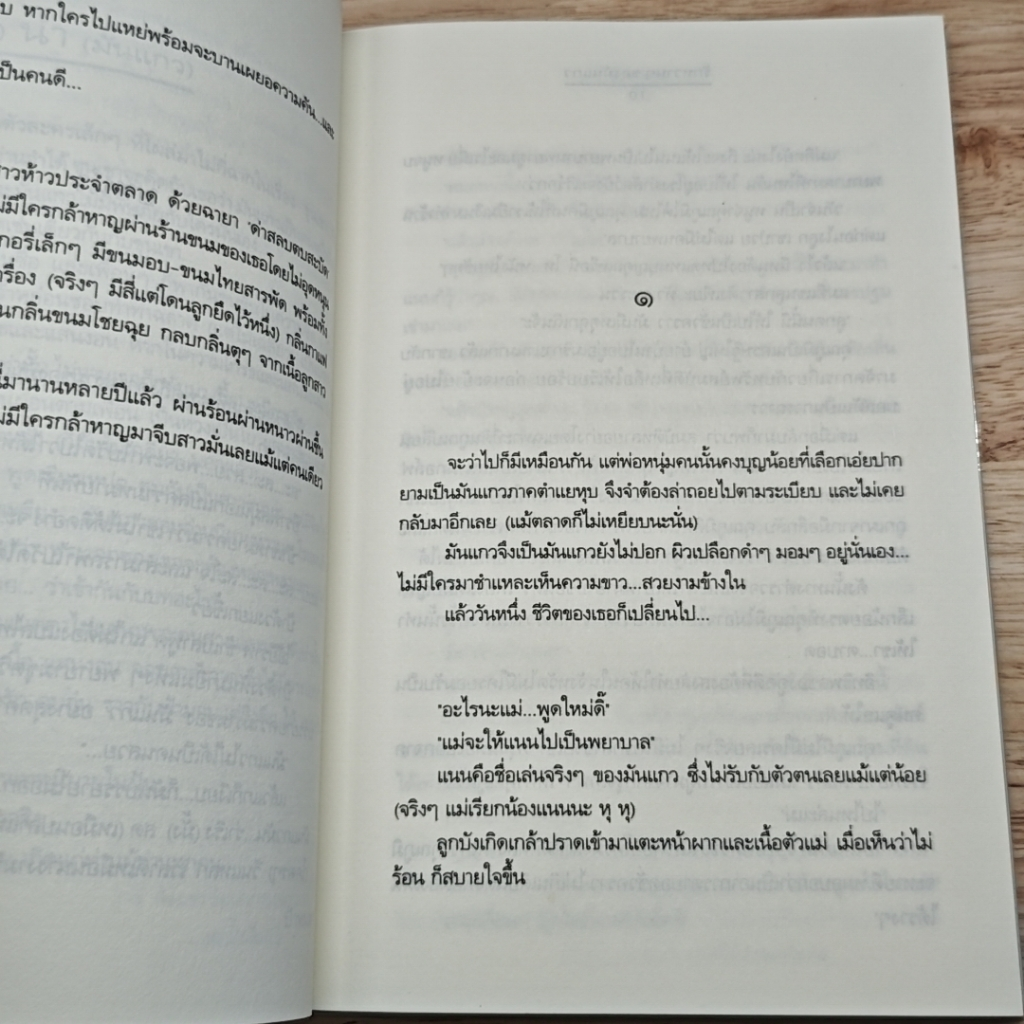 บ หากใครไปแหย่พร้อมจะบานเผยอความคัน...และ
เป็นคนดี...
าวห้าวประจำตลาด ด้วยฉายา "ด่าสลบตบสะบัด"
ม่มีใครกล้าหาญผ่านร้านขนมของเธอโดยไม่อุดหนุน
กอรี่เล็กๆ มีขนมอบ-ขนมไทยสารพัด พร้อมทั้ง
ครื่อง (จริงๆ มีสี่แต่โดนลูกยึดไว้หนึ่ง) กลิ่นกาแฟ
นกลิ่นขนมโชยฉุย กลบกลิ่นตุๆ จากเนื้อลูกสาว
นี้มานานหลายปีแล้ว ผ่านร้อนผ่านหนาวผ่านชื้น
ม่มีใครกล้าหาญมาจีบสาวมั่นเลยแม้แต่คนเดียว
๑
จะว่าไปก็มีเหมือนกัน แต่พ่อหนุ่มคนนั้นคงบุญน้อยที่เลือกเอ่ยปาก
ยามเป็นมันแกวภาคตำแยทุบ จึงจำต้องล่าถอยไปตามระเบียบ และไม่เคย
กลับมาอีกเลย (แม้ตลาดก็ไม่เหยียบนะนั่น)
มันแกวจึงเป็นมันแกวยังไม่ปอก ผิวเปลือกดำๆ มอมๆ อยู่นั่นเอง...
ไม่มีใครมาชำแหละเห็นความขาว...สวยงามข้างใน
แล้ววันหนึ่ง ชีวิตของเธอก็เปลี่ยนไป...
"อะไรนะแม่...พูดใหม่ดิ๊"
"แม่จะให้แนนไปเป็นพยาบาล"
แนนคือชื่อเล่นจริงๆ ของมันแกว ซึ่งไม่รับกับตัวตนเลยแม้แต่น้อย
(จริงๆ แม่เรียกน้องแนนนะ หุ หุ)
ลูกบังเกิดเกล้าปราดเข้ามาแตะหน้าผากและเนื้อตัวแม่ เมื่อเห็นว่าไม่
ร้อน ก็สบายใจขึ้น